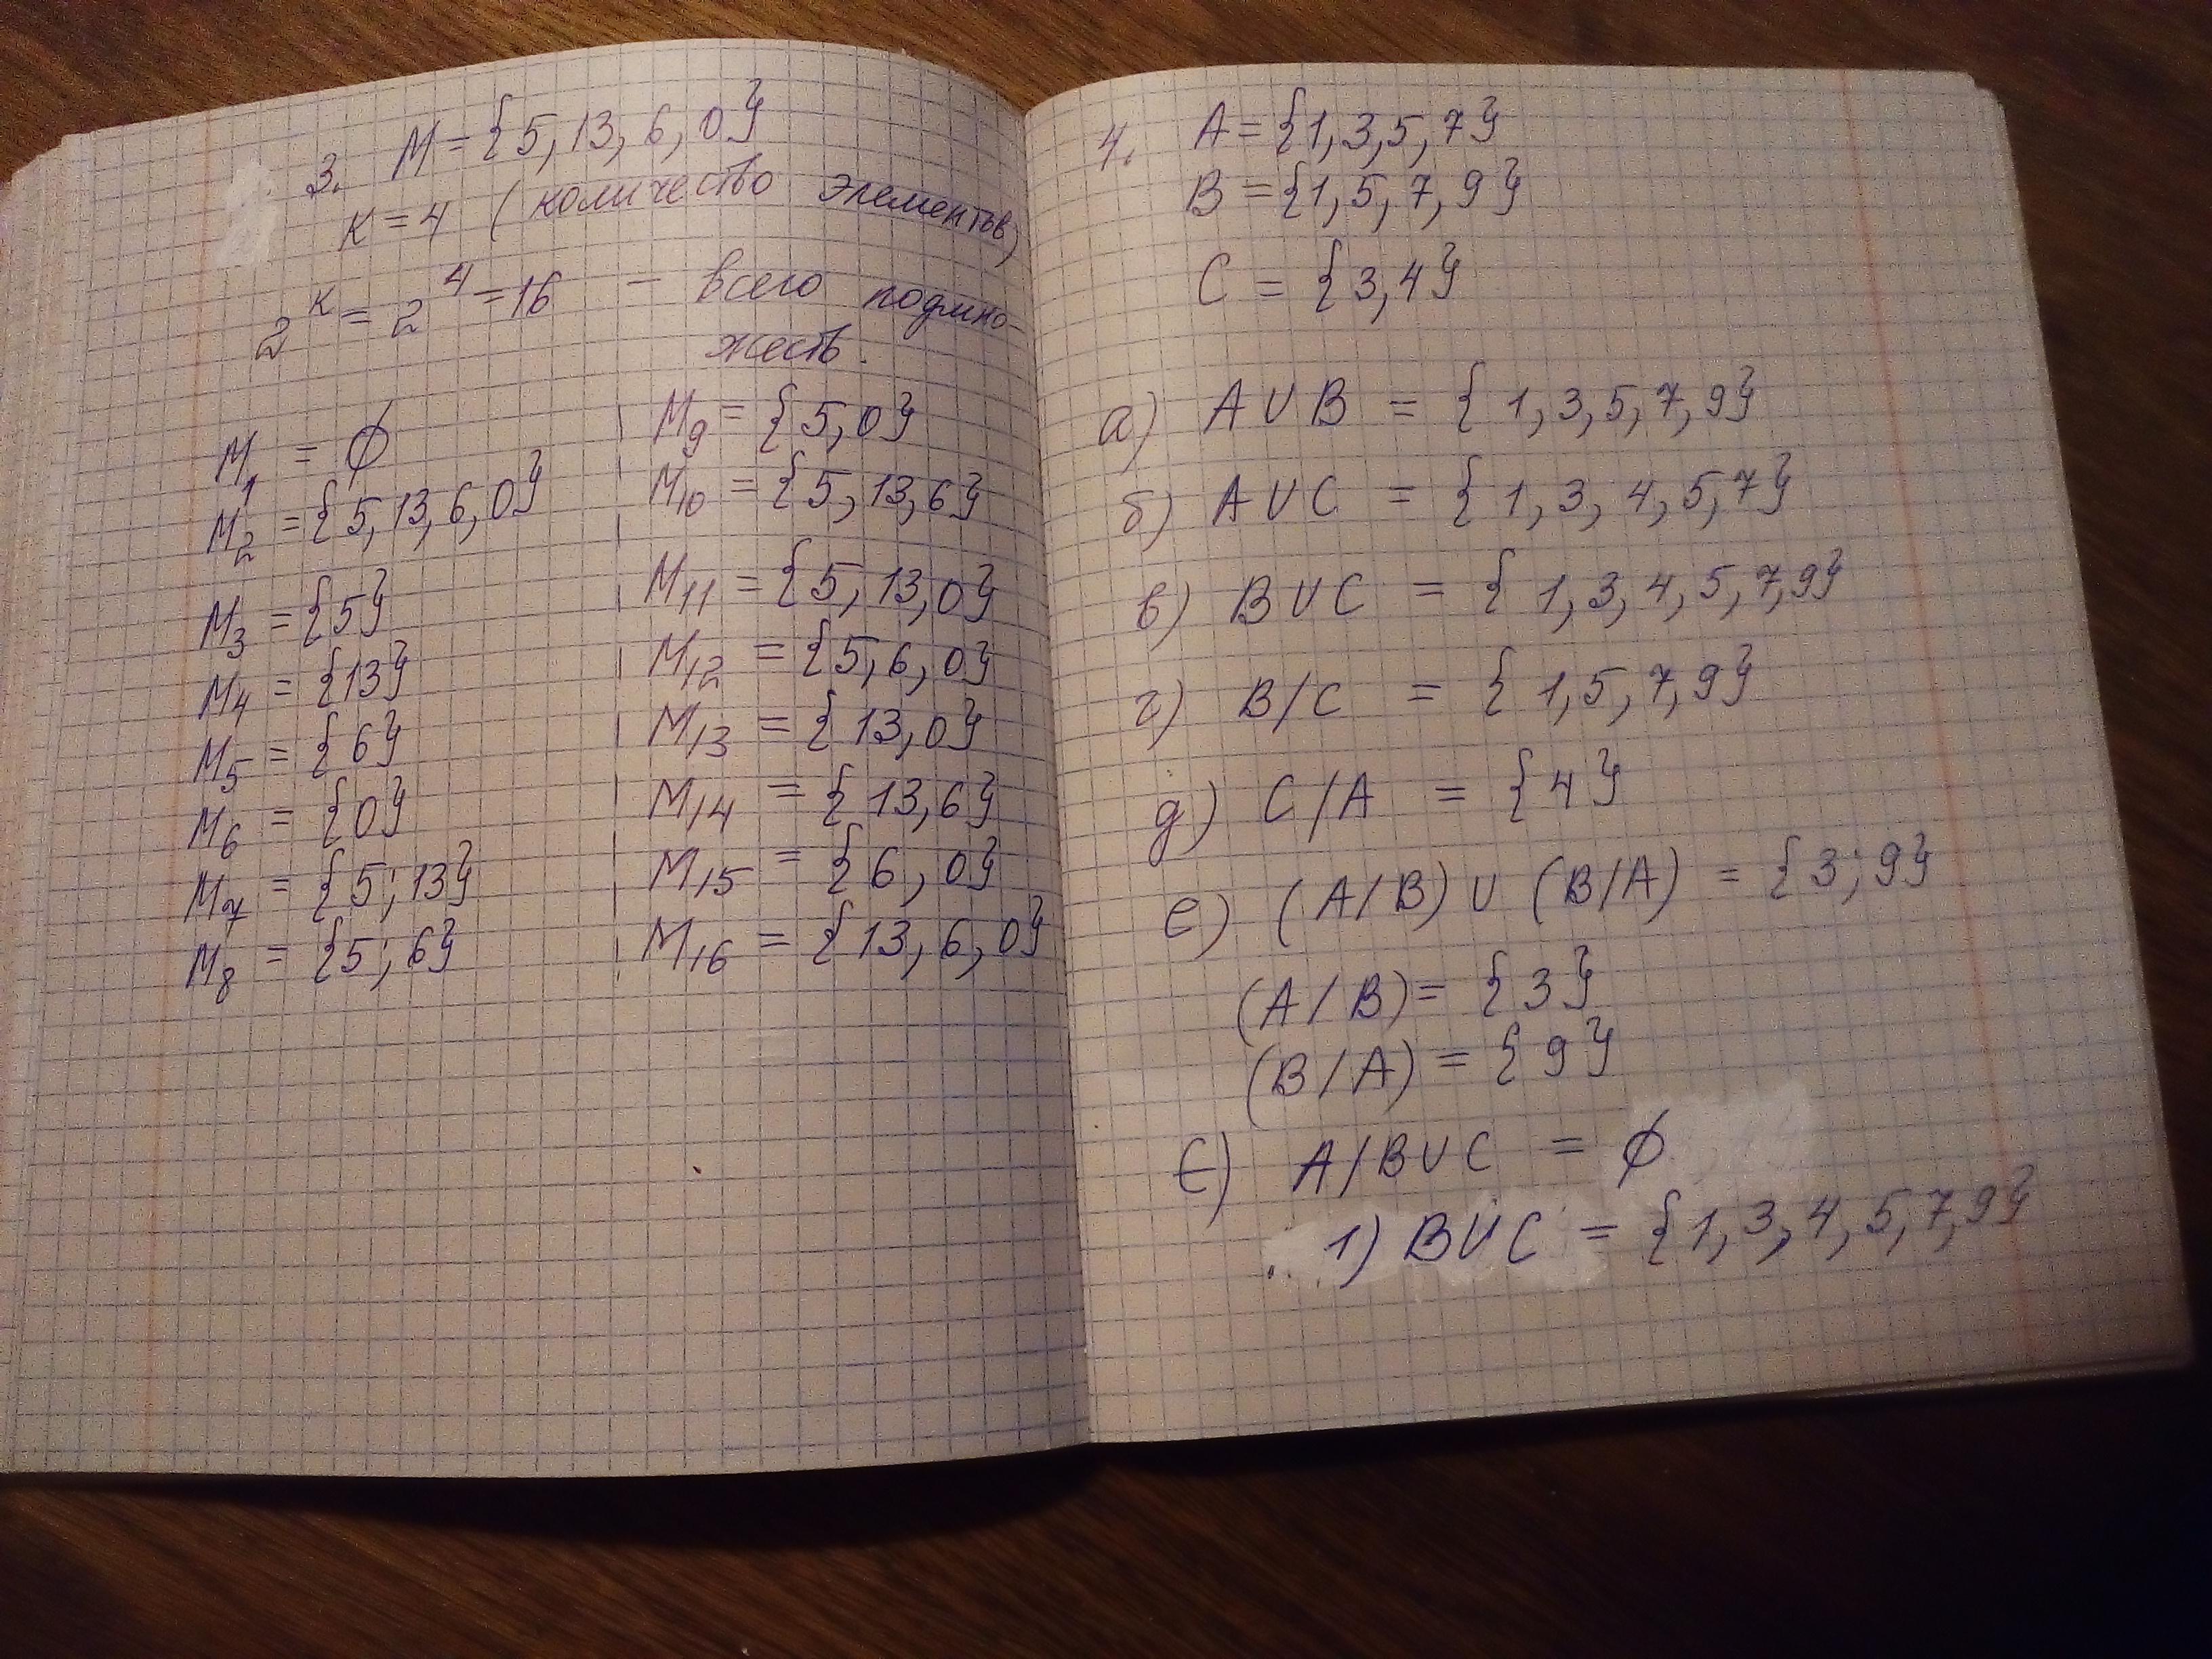 3. M = {5, 13, 6, 0}
к = 4 (количество элементов)
2^к = 2^4 = 16 – всего подмно-
жеств.
M₁ = ∅
M₂ = {5, 13, 6, 0}
M₃ = {5}
M₄ = {13}
M₅ = {6}
M₆ = {0}
M₇ = {5; 13}
M₈ = {5; 6}
M₉ = {5, 0}
M₁₀ = {5, 13, 6}
M₁₁ = {5, 13, 0}
M₁₂ = {5, 6, 0}
M₁₃ = {13, 0}
M₁₄ = {13, 6}
M₁₅ = {6, 0}
M₁₆ = {13, 6, 0}
4. A = {1, 3, 5, 7}
B = {1, 5, 7, 9}
C = {3, 4}
а) A ∪ B = {1, 3, 5, 7, 9}
б) A ∪ C = {1, 3, 4, 5, 7}
в) B ∪ C = {1, 3, 4, 5, 7, 9}
г) B/C = {1, 5, 7, 9}
д) C/A = {4}
е) (A/B) ∪ (B/A) = {3; 9}
(A/B) = {3}
(B/A) = {9}
є) A/B∪C = ∅
1) B∪C = {1, 3, 4, 5, 7, 9}